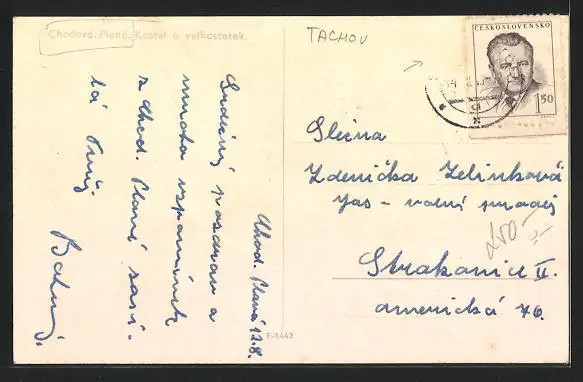 Chodová Planá. Kostel a velkostatek.
TACHOV
ČESKOSLOVENSKO
1.50
Chod. Planá 12.8.
Srdečný pozdrav a
mnoho vzpomínek
z Chod. Plané zasí-
lá
Slečna
Zdenička Zelinková
Jas - volný prodej
Strakonice II.
americká 76.
250
F-1442